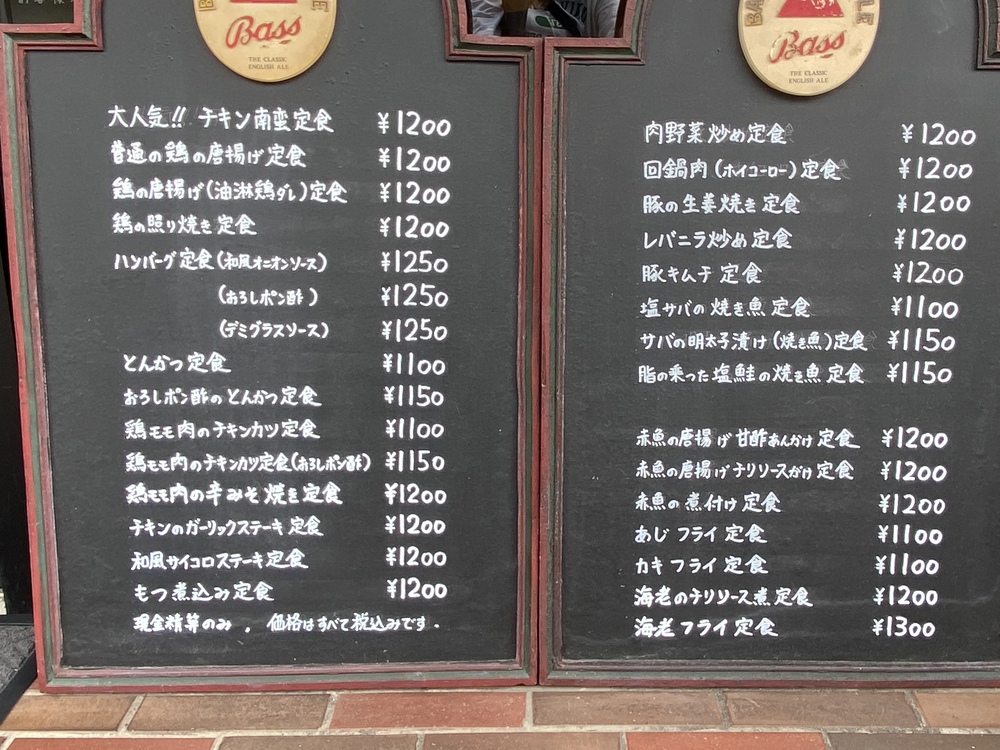 Bass
THE CLASSIC
ENGLISH ALE
大人気!! チキン南蛮定食 ¥1200
普通の鶏の唐揚げ定食 ¥1200
鶏の唐揚げ(油淋鶏ダレ)定食 ¥1200
鶏の照り焼き定食 ¥1200
ハンバーグ定食(和風オニオンソース) ¥1250
(おろしポン酢) ¥1250
(デミグラスソース) ¥1250
とんかつ定食 ¥1100
おろしポン酢のとんかつ定食 ¥1150
鶏モモ肉のチキンカツ定食 ¥1100
鶏モモ肉のチキンカツ定食(おろしポン酢) ¥1150
鶏モモ肉の辛みそ焼き定食 ¥1200
チキンのガーリックステーキ定食 ¥1200
和風サイコロステーキ定食 ¥1200
もつ煮込み定食 ¥1200
現金精算のみ 。 価格はすべて税込みです。
Bass
THE CLASSIC
ENGLISH ALE
肉野菜炒め定食 ¥1200
回鍋肉(ホイコーロー)定食 ¥1200
豚の生姜焼き定食 ¥1200
レバニラ炒め定食 ¥1200
豚キムチ定食 ¥1200
塩サバの焼き魚定食 ¥1100
サバの明太子漬け(焼き魚)定食 ¥1150
脂の乗った塩鮭の焼き魚定食 ¥1150
赤魚の唐揚げ甘酢あんかけ定食 ¥1200
赤魚の唐揚げチリソースがけ定食 ¥1200
赤魚の煮付け定食 ¥1200
あじフライ定食 ¥1100
カキフライ定食 ¥1100
海老のチリソース煮定食 ¥1200
海老フライ定食 ¥1300